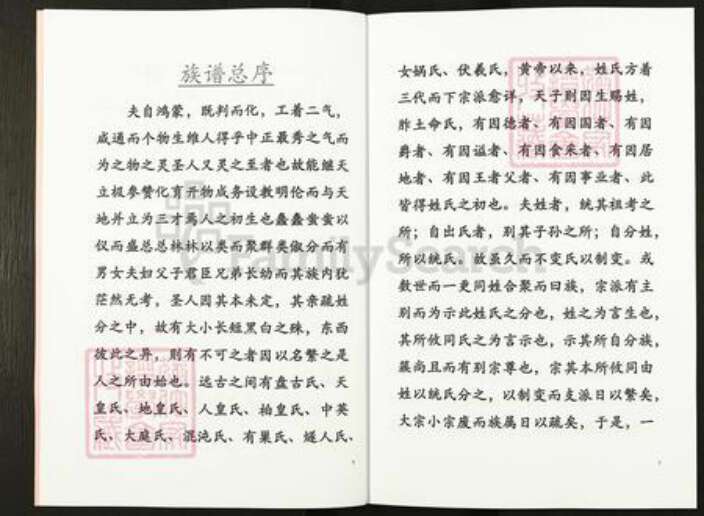 族谱总序
夫自鸿蒙，既判而化，工着二气，
咸通而个物生维人得乎中正最秀之气而
为之物之灵圣人又灵之至者也故能继天
立极参赞化育开物成务设教明伦而与天
地并立为三才焉人之初生也蠢蠢蚩蚩以
仪而盛总总林林以类而聚群类俶分而有
男女夫妇父子君臣兄弟长幼而其族内犹
茫然无考，圣人因其本未定，其亲疏姓
分之中，故有大小长短黑白之殊，东西
彼此之异，则有不可之者因以名繁之是
人之所由始也。远古之间有盘古氏、天
皇氏、地皇氏、人皇氏、柏皇氏、中英
氏、大庭氏、混沌氏、有巢氏、燧人氏、
女娲氏、伏羲氏，黄帝以来，姓氏方着
三代而下宗派愈详，天子则因生赐姓，
胙土命氏，有因德者、有因国者、有因
爵者、有因谥者、有因食采者、有因居
地者、有因王者父者、有因事业者、此
皆得姓氏之初也。夫姓者，统其祖考之
所；自出氏者，别其子孙之所；自分姓，
所以统氏。故虽久而不变氏以制变。或
数世而一更同姓合聚而曰族，宗派有主
别而为示此姓氏之分也，姓之为言生也，
其所攸同氏之为言示也，示其所自分族，
蔟尚且而有别宗尊也，宗其本所攸同由
姓以统氏分之，以制变而支派日以繁矣，
大宗小宗废而族属日以疏矣，于是，一
FamilySearch